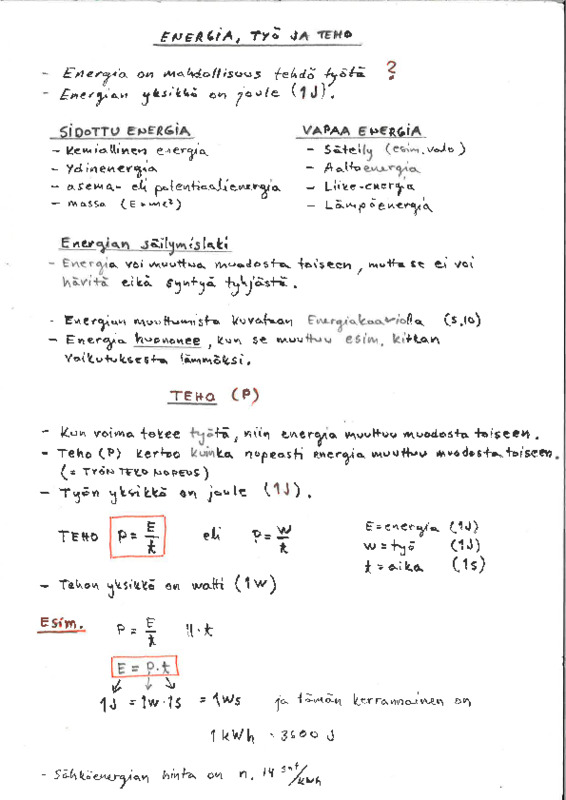 ENERGIA, TYÖ JA TEHO
- Energia on mahdollisuus tehdä työtä ?
- Energian yksikkö on joule (1J).
SIDOTTU ENERGIA
- Kemiallinen energia
- Ydinenergia
- asema- eli potentiaalienergia
- massa (E=mc²)
VAPAA ENERGIA
- Säteily (esim. valo)
- Aaltoenergia
- Liike-energia
- Lämpöenergia
Energian säilymislaki
- Energia voi muuttua muodosta toiseen, mutta se ei voi
hävitä eikä syntyä tyhjästä.
- Energian muuttumista kuvataan Energiakaaviolla (s.10)
- Energia huononee, kun se muuttuu esim. kitkan
vaikutuksesta lämmöksi.
TEHO (P)
- Kun voima tekee työtä, niin energia muuttuu muodosta toiseen.
- Teho (P) kertoo kuinka nopeasti energia muuttuu muodosta toiseen.
(= TYÖN TEKO NOPEUS)
- Työn yksikkö on joule (1J).
TEHO P = E/t eli P = W/t
E = energia (1J)
W = työ (1J)
t = aika (1s)
- Tehon yksikkö on watti (1W)
Esim. P = E/t ||·t
E = P·t
1J = 1W·1s = 1Ws ja tämän kerrannainen on
1 kWh = 3600 J
- Sähköenergian hinta on n. 14 snt/kWh